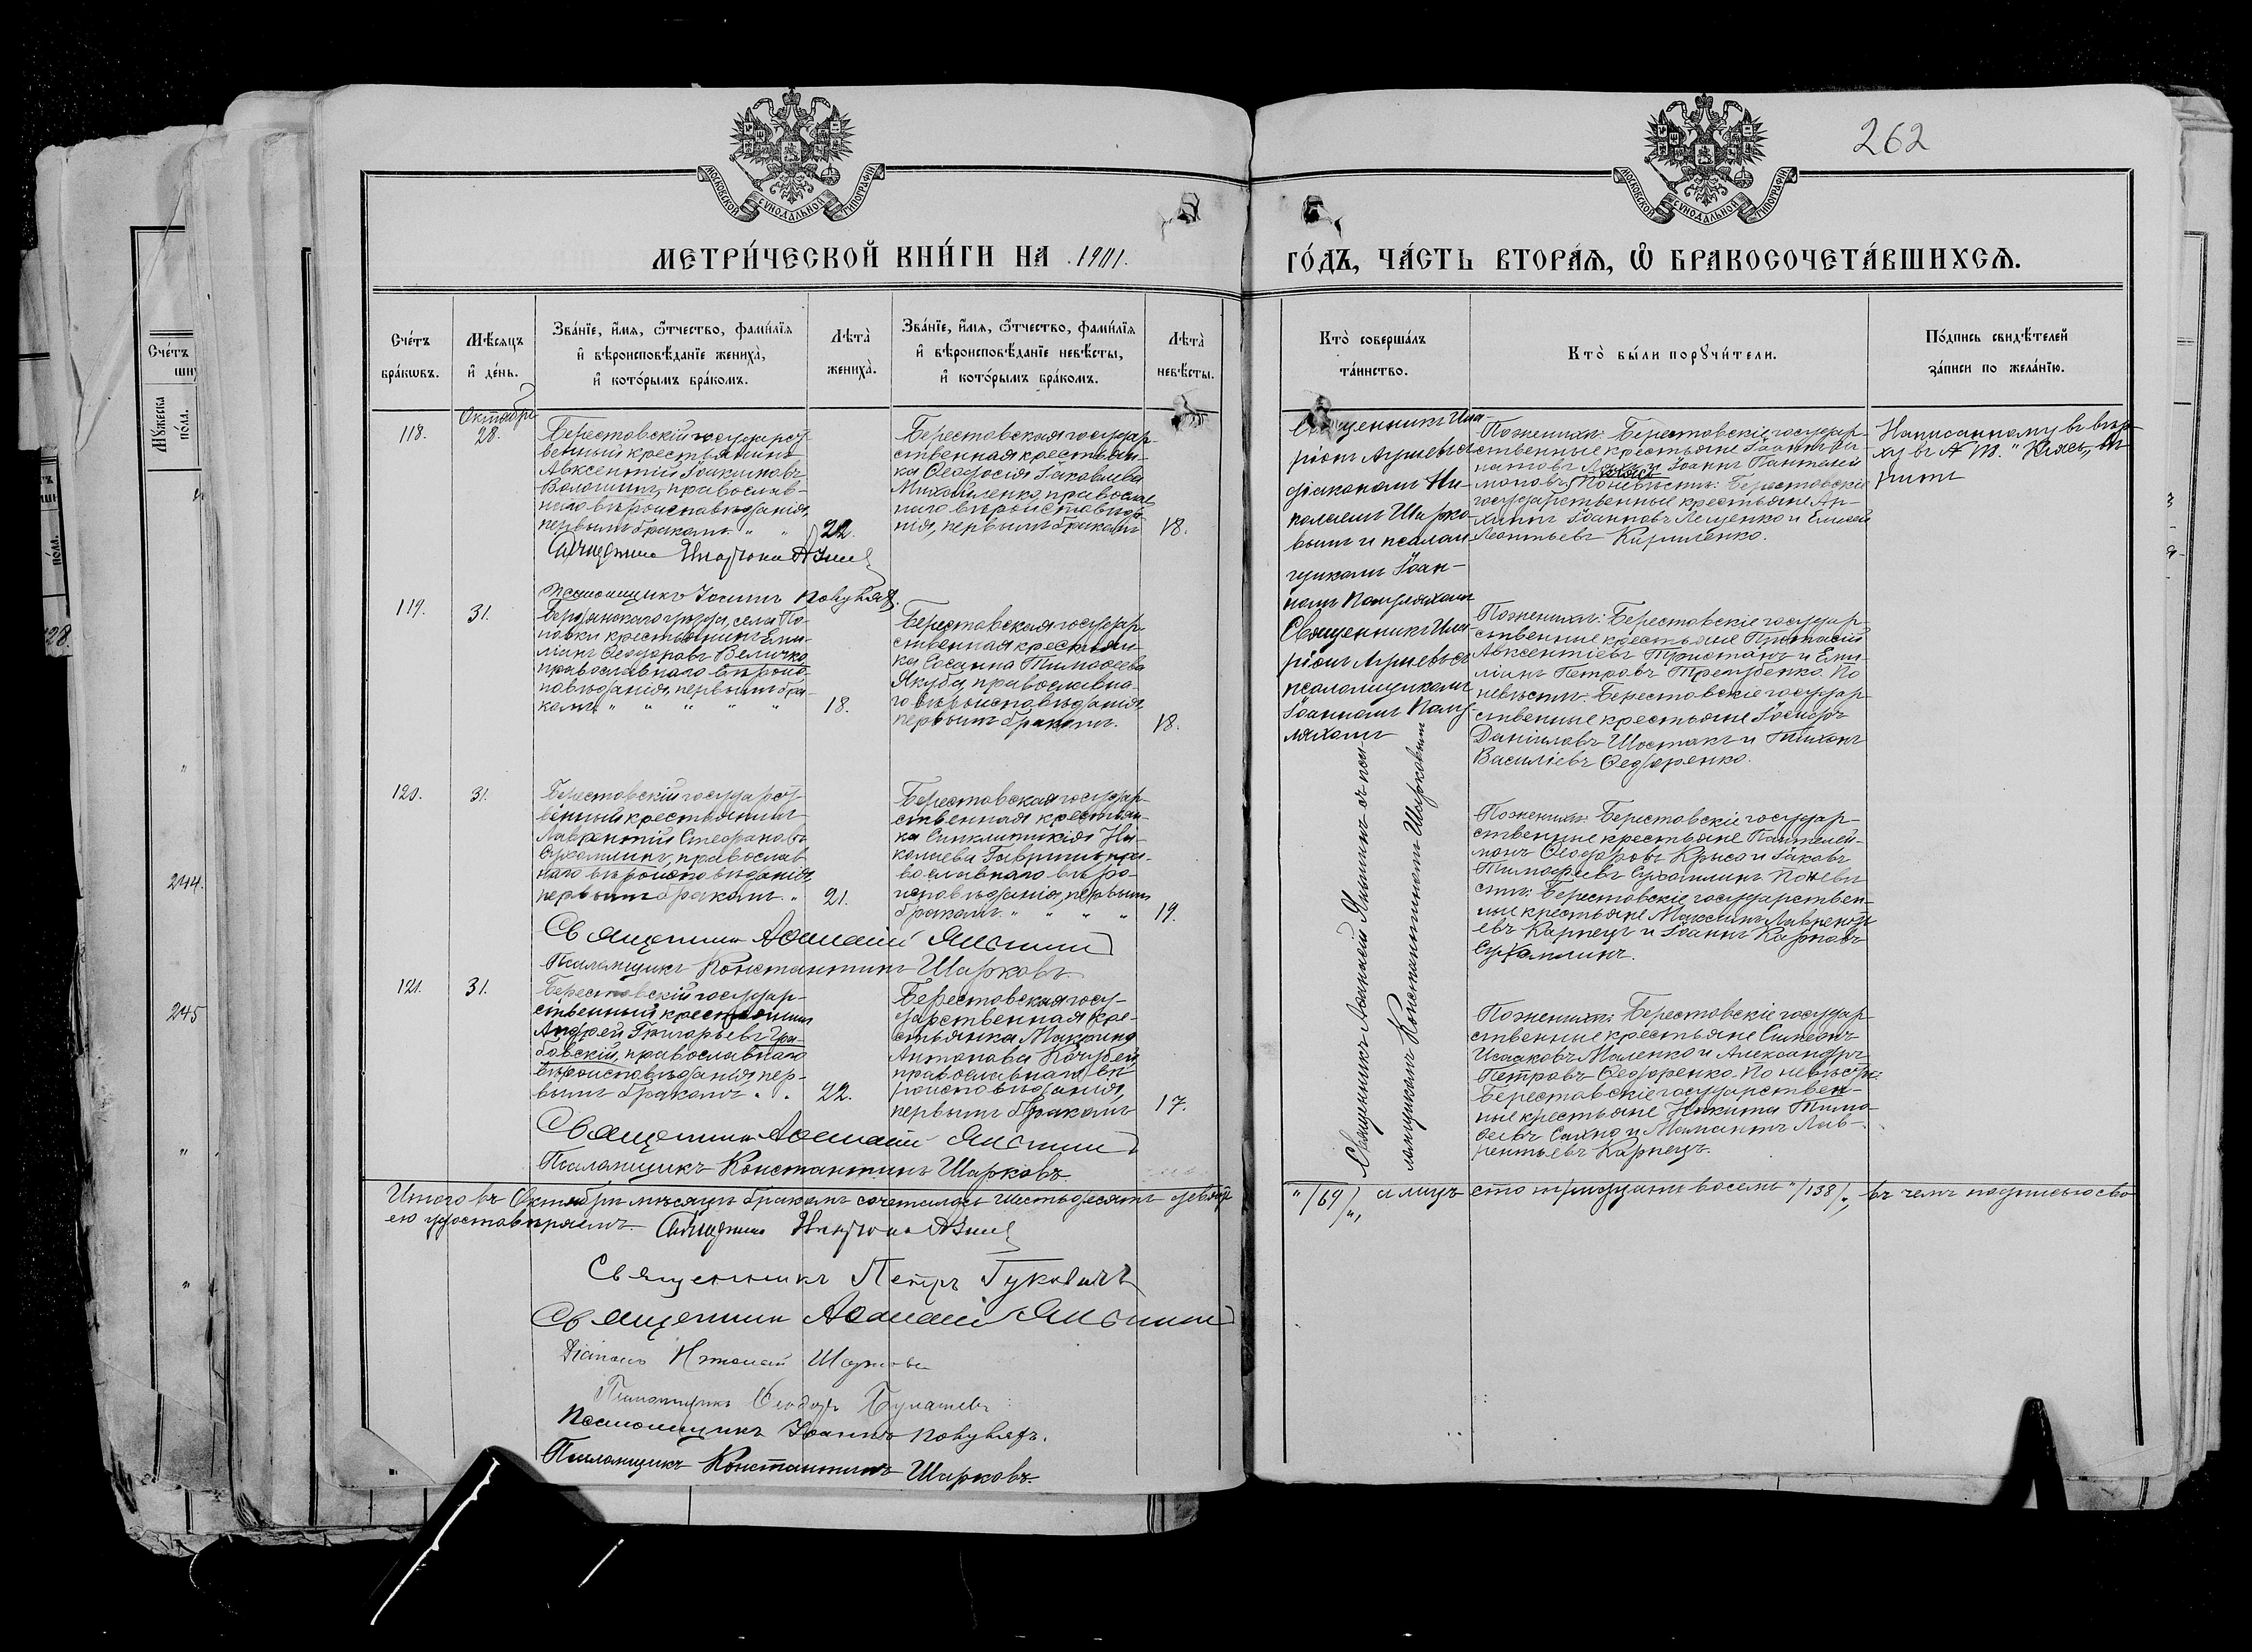 262
МОСКОВСКОЙ СѴНОДАЛЬНОЙ ТИПОГРАФІИ
МОСКОВСКОЙ СѴНОДАЛЬНОЙ ТИПОГРАФІИ
МЕТРИ́ЧЕСКОЙ КНИ́ГИ НА 1901.
ГО́ДЪ, ЧА́СТЬ ВТОРА́Ѧ, Ѽ БРАКОСОЧЕТА́ВШИХСѦ.
Сче́тъ
бра́кѡвъ.
Мѣ́сѧцъ
и҆ де́нь.
Зва́нїе, и҆́мѧ, ѻ҆́тчество, фами́лїѧ
и҆ вѣроисповѣ́данїе жениха̀,
и҆ кото́рымъ бра́комъ.
Лѣта̀
жениха̀.
Зва́нїе, и҆́мѧ, ѻ҆́тчество, фами́лїѧ
и҆ вѣроисповѣ́данїе невѣ́сты,
и҆ кото́рымъ бра́комъ.
Лѣта̀
невѣ́сты.
Кто̀ соверша́лъ
та́инство.
Кто̀ бы́ли порꙋчи́тели.
По́дпись свидѣ́телей
за́писи по жела́нїю.
118.
Октября
28.
Берестовскій государст-
венный крестьянинъ
Авксентій Іоакимовъ
Волошинъ, православ-
наго вѣроисповѣданія,
первымъ бракомъ. " "
22.
Берестовская государ-
ственная крестьян-
ка Ѳеодосія Іаковлева
Михайленко, православ-
наго вѣроисповѣда-
нія, первымъ бракомъ
18.
Священникъ Ила-
ріонъ Агриевъ съ
діакономъ Ни-
колаемъ Шарко-
вымъ и псалом-
щикомъ Іоан-
номъ
По женихѣ: Берестовскіе государ-
ственные крестьяне Іоаннъ
и Іоаннъ Пантелей
моновъ По невѣстѣ: Берестовскіе
государственные крестьяне Ар-
хиппъ Іоанновъ Лещенко и Елисей
Леонтьевъ Кириленко.
Написанному въ вер-
ху въ №
Священникъ Иларіонъ
Псаломщикъ Іоаннъ
119.
31.
Бердянскаго уѣзда, села По-
повки крестьянинъ Еми-
ліанъ Ѳеодоровъ Величко
православнаго вѣроис-
повѣданія, первымъ бра-
комъ " " " " "
18.
Берестовская государ-
ственная крестьян-
ка Сосанна Тимоѳеева
Якуба, православна-
го вѣроисповѣданія,
первымъ бракомъ.
18.
Священникъ Ила-
ріонъ Агриевъ съ
псаломщикомъ
Іоанномъ
По женихѣ: Берестовскіе государ-
ственные крестьяне Протасій
Авксентіевъ Тристанъ и Еми-
ліанъ Петровъ По
невѣстѣ: Берестовскіе государ-
ственные крестьяне Іосифъ
Даніиловъ Шостакъ и Тихонъ
Василіевъ Ѳедоренко.
120.
31.
Берестовскій государст-
венный крестьянинъ
Лаврентій Стефановъ
Сухомлинъ, православ-
наго вѣроисповѣданія,
первымъ бракомъ. "
21.
Берестовская государ-
ственная крестьян-
ка Синклитикія Ни-
колаева Гавришъ, пра-
вославнаго вѣро-
исповѣданія, первымъ
бракомъ. " " " "
19.
Священникъ Аѳанасій съ псал-
омщикомъ Константиномъ Шарковымъ
По женихѣ: Берестовскіе государ-
ственные крестьяне Пантелей-
монъ Ѳеодоровъ Крыса и Іаковъ
Тимофіевъ Сухомлинъ По невѣ-
стѣ: Берестовскіе государствен-
ные крестьяне Максимъ Лаврентьь
евъ Карпецъ и Іоаннъ Карповъ
Сухомлинъ.
Священникъ Аѳанасій
Псаломщикъ Константинъ Шарковъ.
121.
31.
Берестовскій государ-
ственный крестьянинъ
Андрей Григорьевъ Гра-
бовскій, православнаго
вѣроисповѣданія, пер-
вымъ бракомъ. " "
22.
Берестовская госу-
дарственная кре-
стьянка Макрина
Антонова Кочубей
православнаго вѣ-
роисповѣданія,
первымъ бракомъ
17.
По женихѣ: Берестовскіе государ-
ственные крестьяне Симеонъ
Исааковъ Маленко и Александръ
Петровъ Ѳедоренко. По невѣстѣ:
Берестовскіе государствен-
ные крестьяне Никита Тимо-
ѳеевъ Сахно и Мамантъ Лав-
рентьевъ Карпецъ.
Священникъ Аѳанасій
Псаломщикъ Константинъ Шарковъ
Итого въ Октябрѣ мѣсяцѣ бракомъ сочеталось шестьдесятъ девять
"/69/", а лицъ сто тридцать восемь "/138/", въ чемъ подписью сво
ею удостовѣряемъ. Священникъ Иларіонъ
Священникъ Петръ Гуковичъ
Священникъ Аѳанасій
Діаконъ Николай Шарковъ
Псаломщикъ Ѳеодоръ
Псаломщикъ Іоаннъ
Псаломщикъ Константинъ Шарковъ.
Сче́тъ
Мꙋ́жеска
по́ла.
244.
245
28.